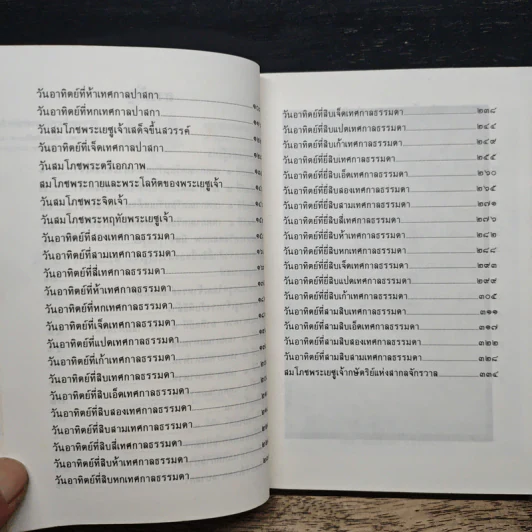 วันอาทิตย์ที่ห้าเทศกาลปาสกา
วันอาทิตย์ที่หกเทศกาลปาสกา
วันสมโภชพระเยซูเจ้าเสด็จขึ้นสวรรค์
วันอาทิตย์ที่เจ็ดเทศกาลปาสกา
วันสมโภชพระตรีเอกภาพ
สมโภชพระกายและพระโลหิตของพระเยซูเจ้า
วันสมโภชพระจิตเจ้า
วันสมโภชพระหฤทัยพระเยซูเจ้า
วันอาทิตย์ที่สองเทศกาลธรรมดา
วันอาทิตย์ที่สามเทศกาลธรรมดา
วันอาทิตย์ที่สี่เทศกาลธรรมดา
วันอาทิตย์ที่ห้าเทศกาลธรรมดา
วันอาทิตย์ที่หกเทศกาลธรรมดา
วันอาทิตย์ที่เจ็ดเทศกาลธรรมดา
วันอาทิตย์ที่แปดเทศกาลธรรมดา
วันอาทิตย์ที่เก้าเทศกาลธรรมดา
วันอาทิตย์ที่สิบเทศกาลธรรมดา
วันอาทิตย์ที่สิบเอ็ดเทศกาลธรรมดา
วันอาทิตย์ที่สิบสองเทศกาลธรรมดา
วันอาทิตย์ที่สิบสามเทศกาลธรรมดา
วันอาทิตย์ที่สิบสี่เทศกาลธรรมดา
วันอาทิตย์ที่สิบห้าเทศกาลธรรมดา
วันอาทิตย์ที่สิบหกเทศกาลธรรมดา
วันอาทิตย์ที่สิบเจ็ดเทศกาลธรรมดา ๒๓๘
วันอาทิตย์ที่สิบแปดเทศกาลธรรมดา ๒๔๔
วันอาทิตย์ที่สิบเก้าเทศกาลธรรมดา ๒๔๙
วันอาทิตย์ที่ยี่สิบเทศกาลธรรมดา ๒๕๕
วันอาทิตย์ที่ยี่สิบเอ็ดเทศกาลธรรมดา ๒๖๐
วันอาทิตย์ที่ยี่สิบสองเทศกาลธรรมดา ๒๖๕
วันอาทิตย์ที่ยี่สิบสามเทศกาลธรรมดา ๒๗๑
วันอาทิตย์ที่ยี่สิบสี่เทศกาลธรรมดา ๒๗๖
วันอาทิตย์ที่ยี่สิบห้าเทศกาลธรรมดา ๒๘๒
วันอาทิตย์ที่ยี่สิบหกเทศกาลธรรมดา ๒๘๘
วันอาทิตย์ที่ยี่สิบเจ็ดเทศกาลธรรมดา ๒๙๓
วันอาทิตย์ที่ยี่สิบแปดเทศกาลธรรมดา ๒๙๙
วันอาทิตย์ที่ยี่สิบเก้าเทศกาลธรรมดา ๓๐๕
วันอาทิตย์ที่สามสิบเทศกาลธรรมดา ๓๑๑
วันอาทิตย์ที่สามสิบเอ็ดเทศกาลธรรมดา ๓๑๗
วันอาทิตย์ที่สามสิบสองเทศกาลธรรมดา ๓๒๒
วันอาทิตย์ที่สามสิบสามเทศกาลธรรมดา ๓๒๘
สมโภชพระเยซูเจ้ากษัตริย์แห่งสากลจักรวาล ๓๓๔